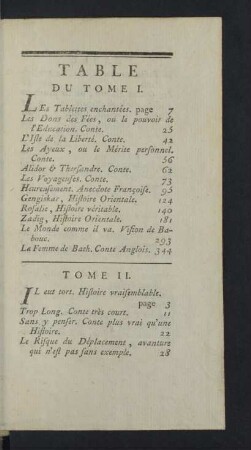 TABLE
DU TOME I.
LEs Tablettes enchantées. page 7
Les Dons des Fées, ou le pouvoir de
l'Education. Conte. 25
L'Isle de la Liberté. Conte. 42
Les Ayeux, ou le Mérite personnel.
Conte. 56
Alidor & Thersandre. Conte. 62
Les Voyageuses. Conte. 73
Heureusement. Anecdote Françoise. 95
Gengiskar, Histoire Orientale. 124
Rosalie, Histoire véritable. 140
Zadig, Histoire Orientale. 181
Le Monde comme il va. Vision de Ba-
bouc. 293
La Femme de Bath. Conte Anglois. 344
TOME II.
IL eut tort. Histoire vraisemblable.
page 3
Trop Long. Conte très court. 11
Sans y penser. Conte plus vrai qu'une
Histoire. 22
Le Risque du Déplacement, avanture
qui n'est pas sans exemple. 28